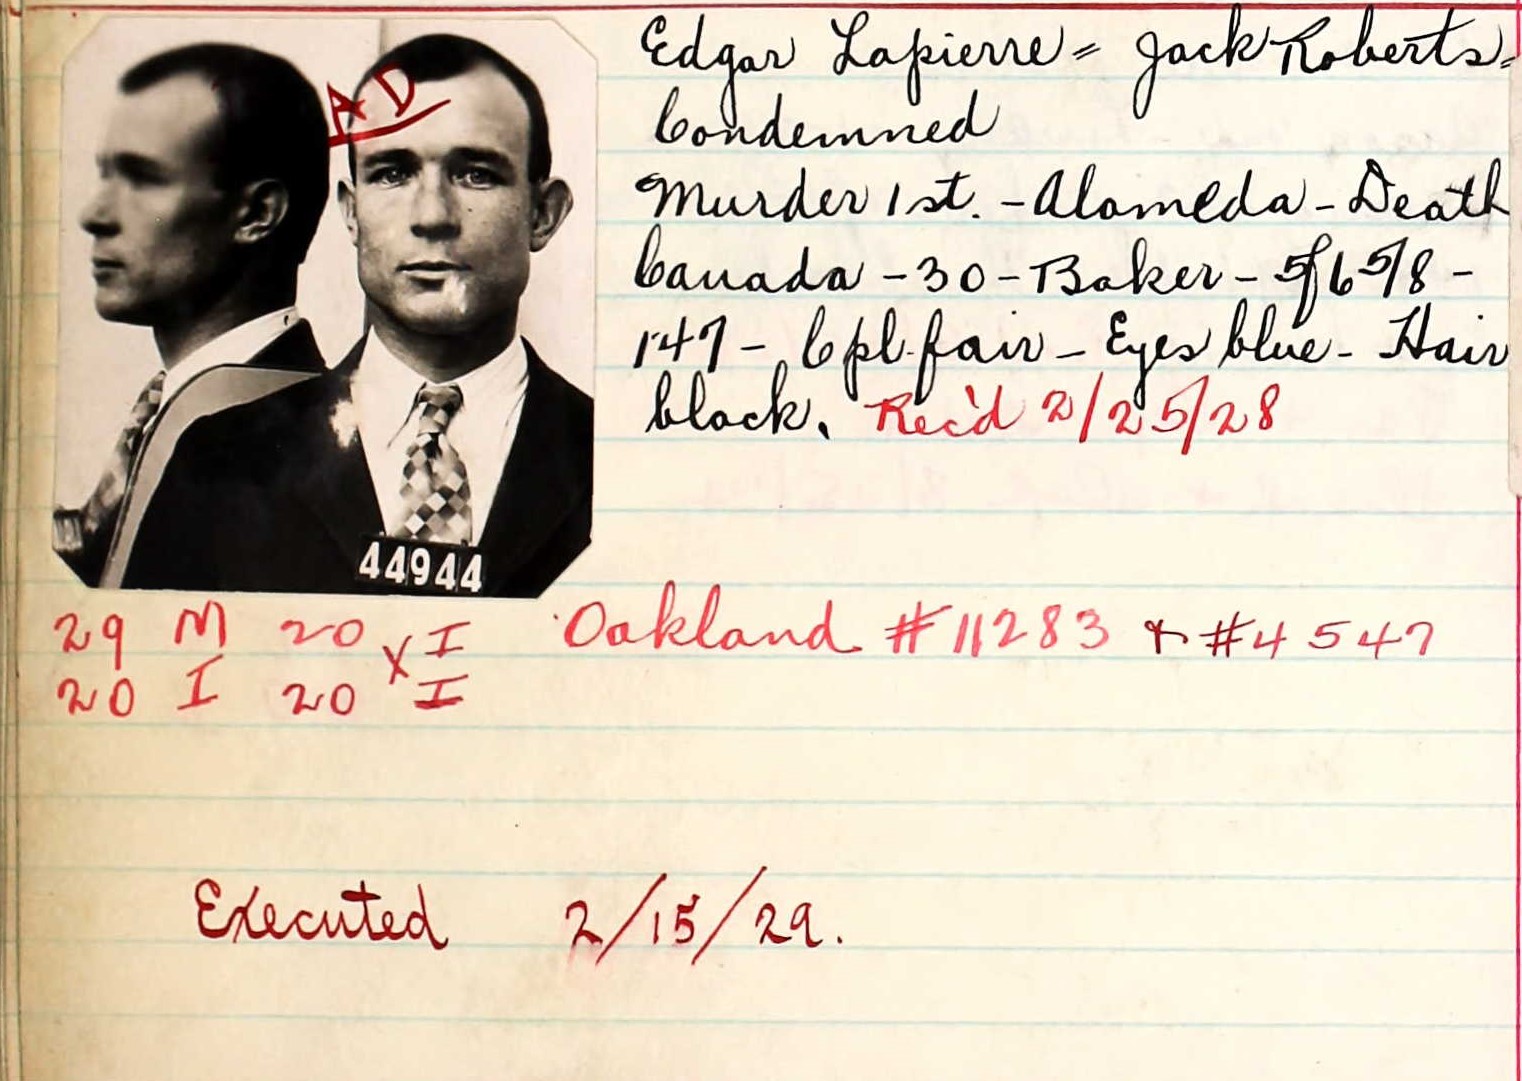 AD
Edgar Lapierre = Jack Roberts =
Condemned
Murder 1st. - Alameda - Death
Canada - 30 - Baker - 5/6 5/8 -
147 - Cpl. fair - Eyes blue - Hair
black. Rec'd 2/25/28
44944
29 M 20 X I Oakland #11283 & #4547
20 I 20 I
Executed 2/15/29.